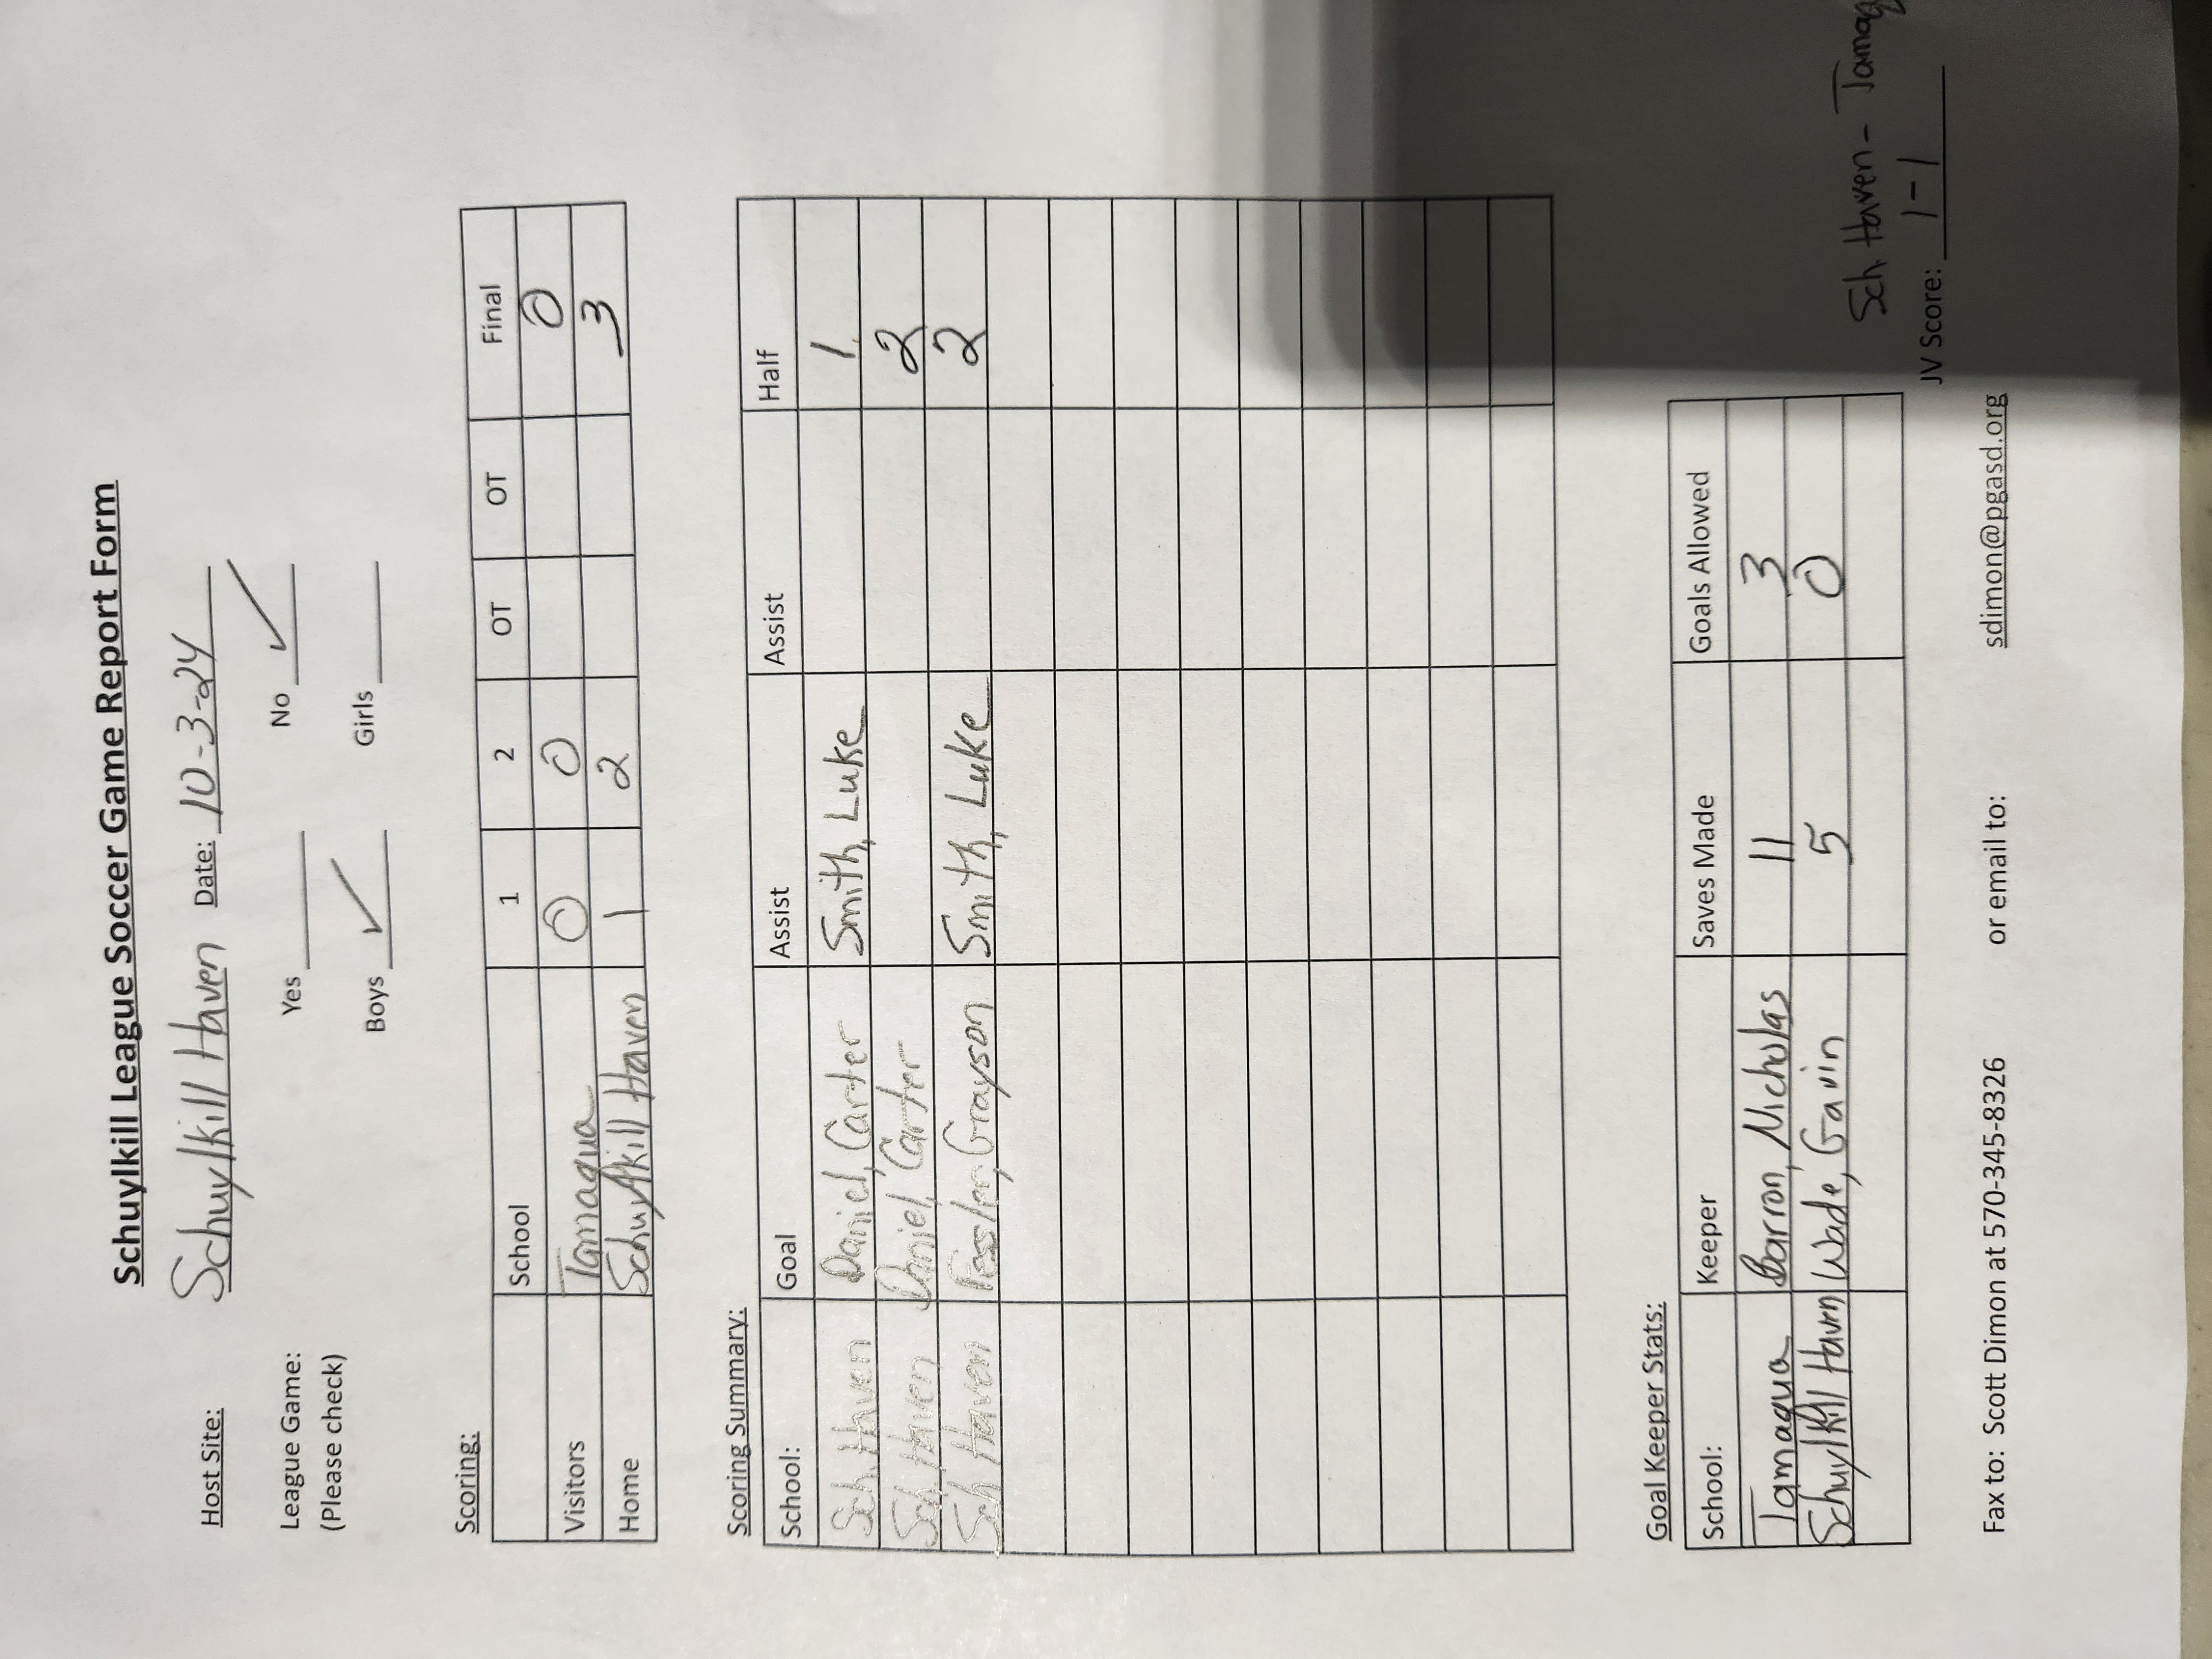 Schuylkill League Soccer Game Report Form
Host Site: Schuylkill Haven Date: 10-3-24
League Game: Yes No ✓
(Please check) Boys ✓ Girls
Scoring:
School 1 2 OT OT Final
Visitors Tamaqua 0 0 0
Home Schuylkill Haven 1 2 3
Scoring Summary:
School: Goal Assist Assist Half
Sch. Haven Daniel, Carter Smith, Luke 1
Sch. Haven Daniel, Carter 2
Sch Haven Fessler, Grayson Smith, Luke 2
Goal Keeper Stats:
School: Keeper Saves Made Goals Allowed
Tamaqua Barron, Nicholas 11 3
Schuylkill Haven Wade, Gavin 5 0
Sch. Haven -
JV Score: 1-1
Fax to: Scott Dimon at 570-345-8326 or email to: sdimon@pgasd.org